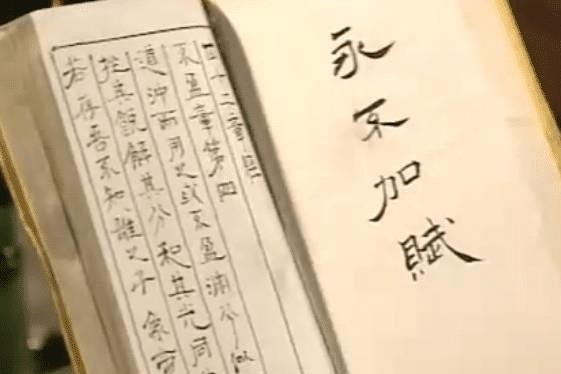 永不加賦
四十二章经
不盈章第四
道沖而用之或不盈渊兮似
挫其銳解其分和其光同
若存吾不知誰之子象帝